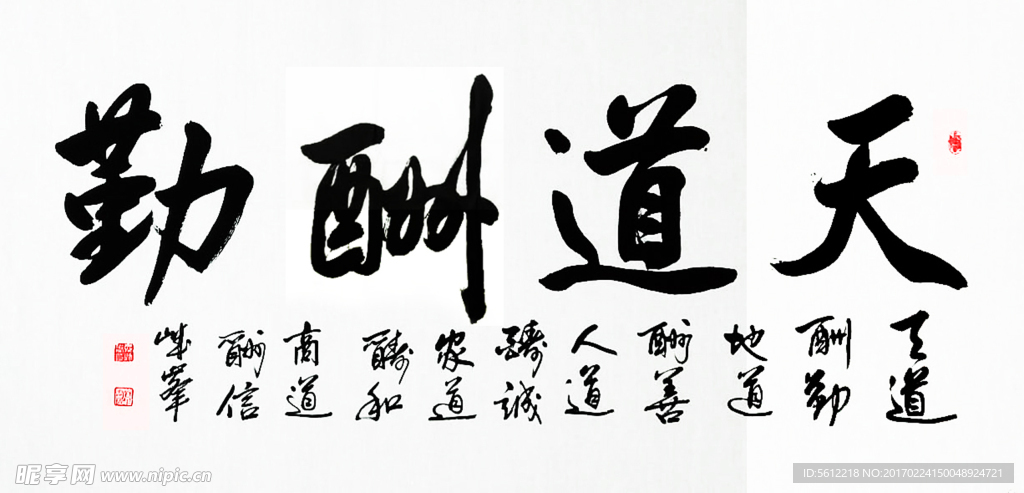 天道酬勤
天道
酬勤
地道
酬善
人道
醻誠
家道
醻和
商道
酬信
峯
昵享网 www.nipic.cn
ID:5612218 NO:20170224150048924721